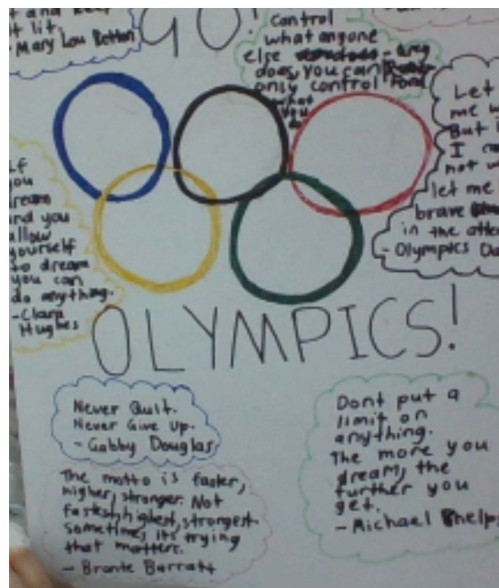 t and
t lit.
-Mary Lou Retton
GO!
Control
what anyone
else
does, you can
only control
what
you
do
Let
me w
But i
I ca
not w
let me
brave
in the atte
- Olympics Oa
If
you
dream
and you
allow
yourself
to dream
you can
do anything.
-Clara
Hughes
OLYMPICS!
Never Quit.
Never Give Up.
- Gabby Douglas
The motto is faster,
higher, stronger. Not
fastest, highest, strongest.
Sometimes, its trying
that matters.
- Bronte Barratt
Dont put a
limit on
anything.
The more you
dream, the
further you
get.
- Michael Phelps